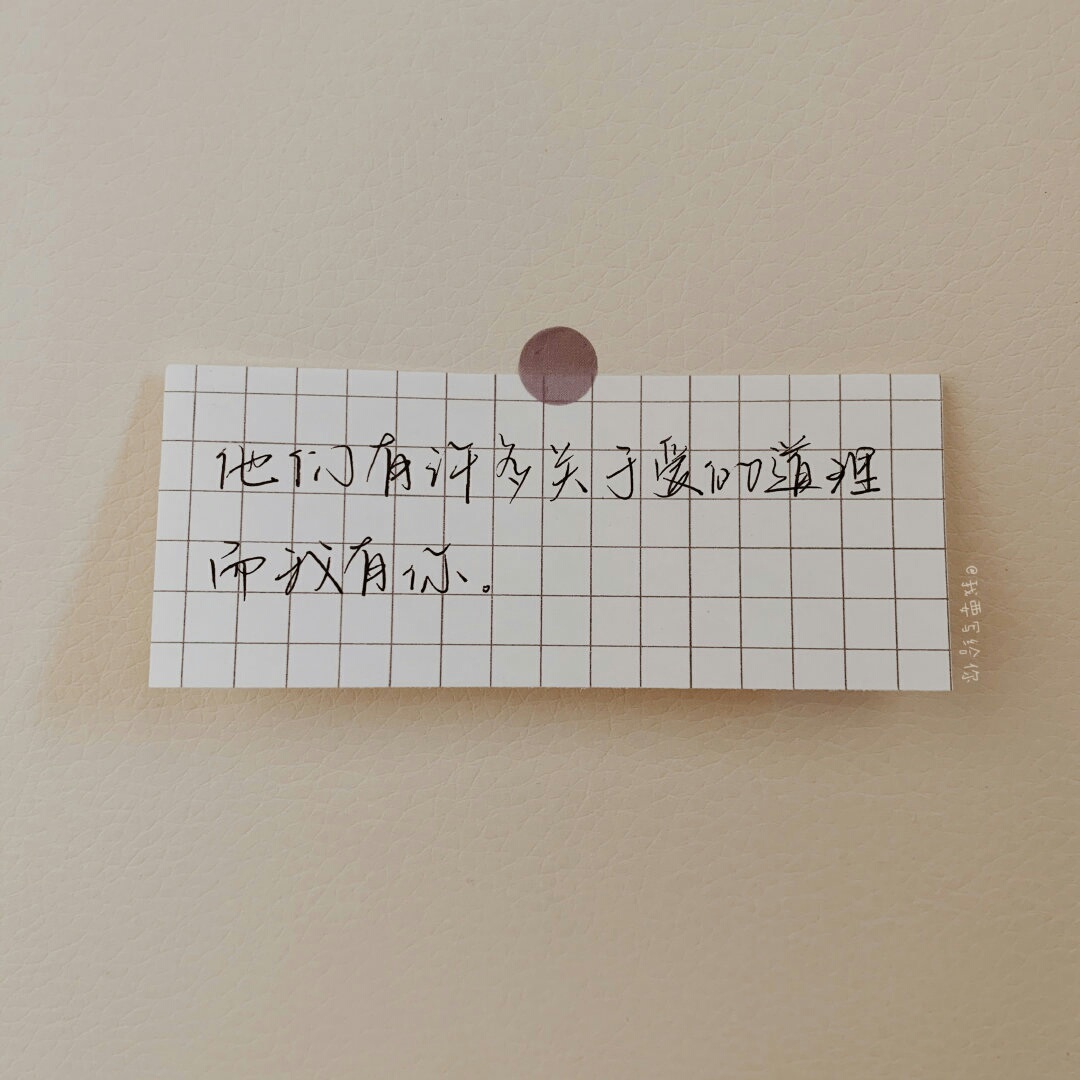 他们有许多关于爱的道理
而我有你。
@我要写给你